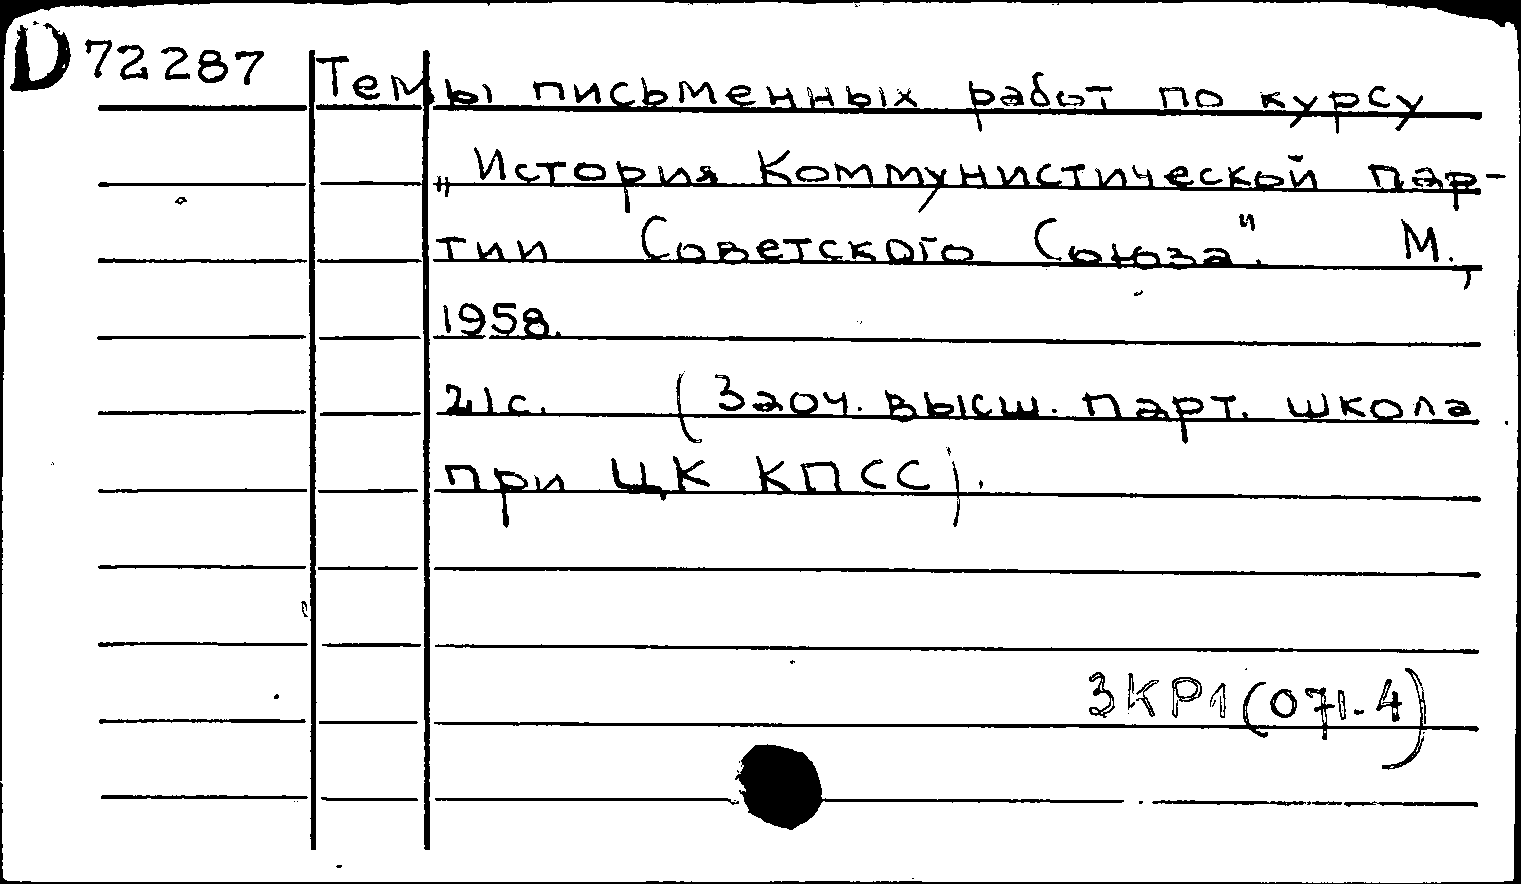 D 72287 Темы письменных работ по курсу
„История Коммунистической пар-
тии Советского Союза". М.,
1958.
21с. (Заоч. высш. парт. школа
при ЦК КПСС).
3КР1(071-4)